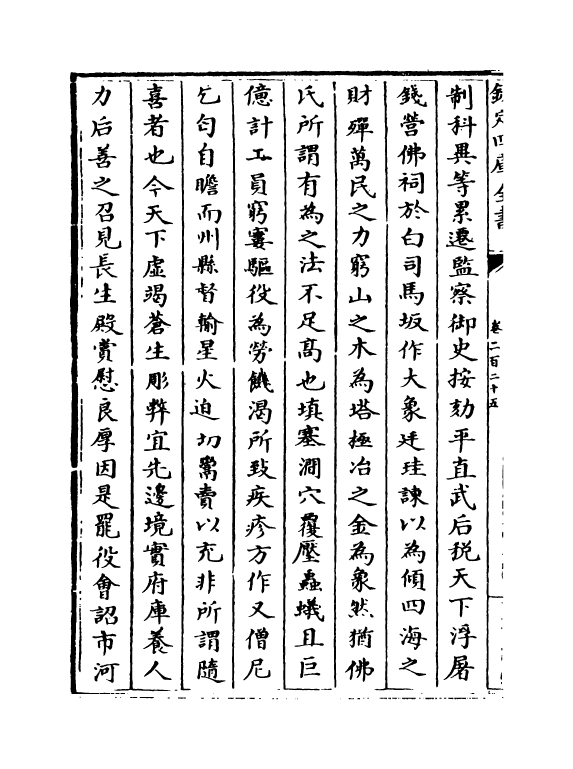 欽定四庫全書
卷二百二十五
制科異等累遷監察御史按劾平直武后税天下浮屠
錢營佛祠於白司馬坂作大象廷珪諫以為傾四海之
財殫萬民之力窮山之木為塔極冶之金為象然猶佛
氏所謂有為之法不足髙也填塞澗穴覆壓蟲蟻且巨
億計工員窮窶驅役為勞饑渴所致疾疹方作又僧尼
乞匄自贍而州縣督輸星火迫切鬻賣以充非所謂隨
喜者也今天下虚竭蒼生彫弊宜先邊境實府庫養人
力后善之召見長生殿賞慰良厚因是罷役會詔市河